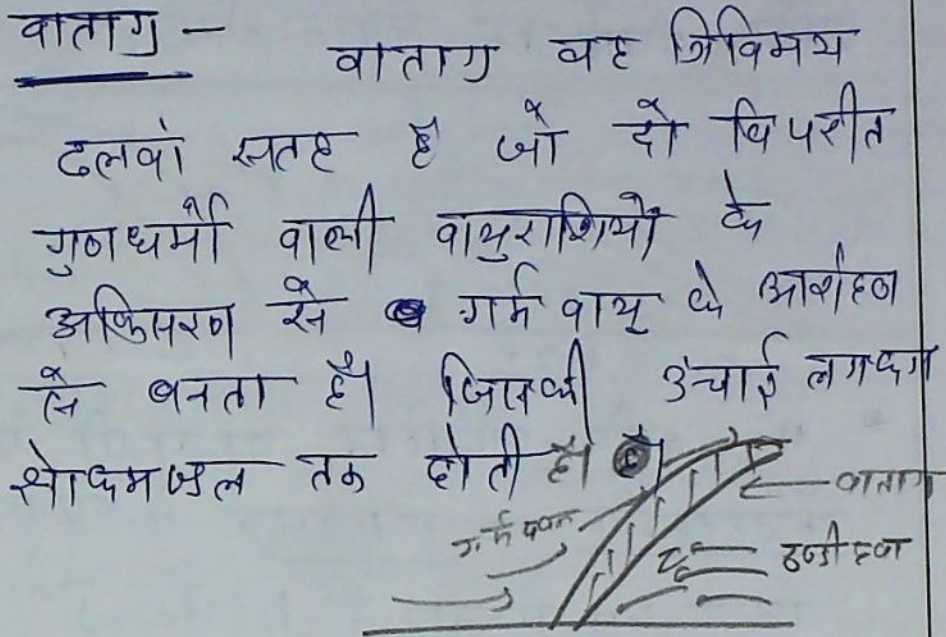 वाताग्र -
वाताग्र वह त्रिविमय
ढलवां सतह है जो दो विपरीत
गुणधर्मो वाली वायुराशियों के
अभिसरण से गर्म वायु के आरोहण
से बनता है। जिसकी उंचाई लगभग
क्षोभमण्डल तक होती है।
वाताग्र
गर्म पवन
ठण्डी हवा